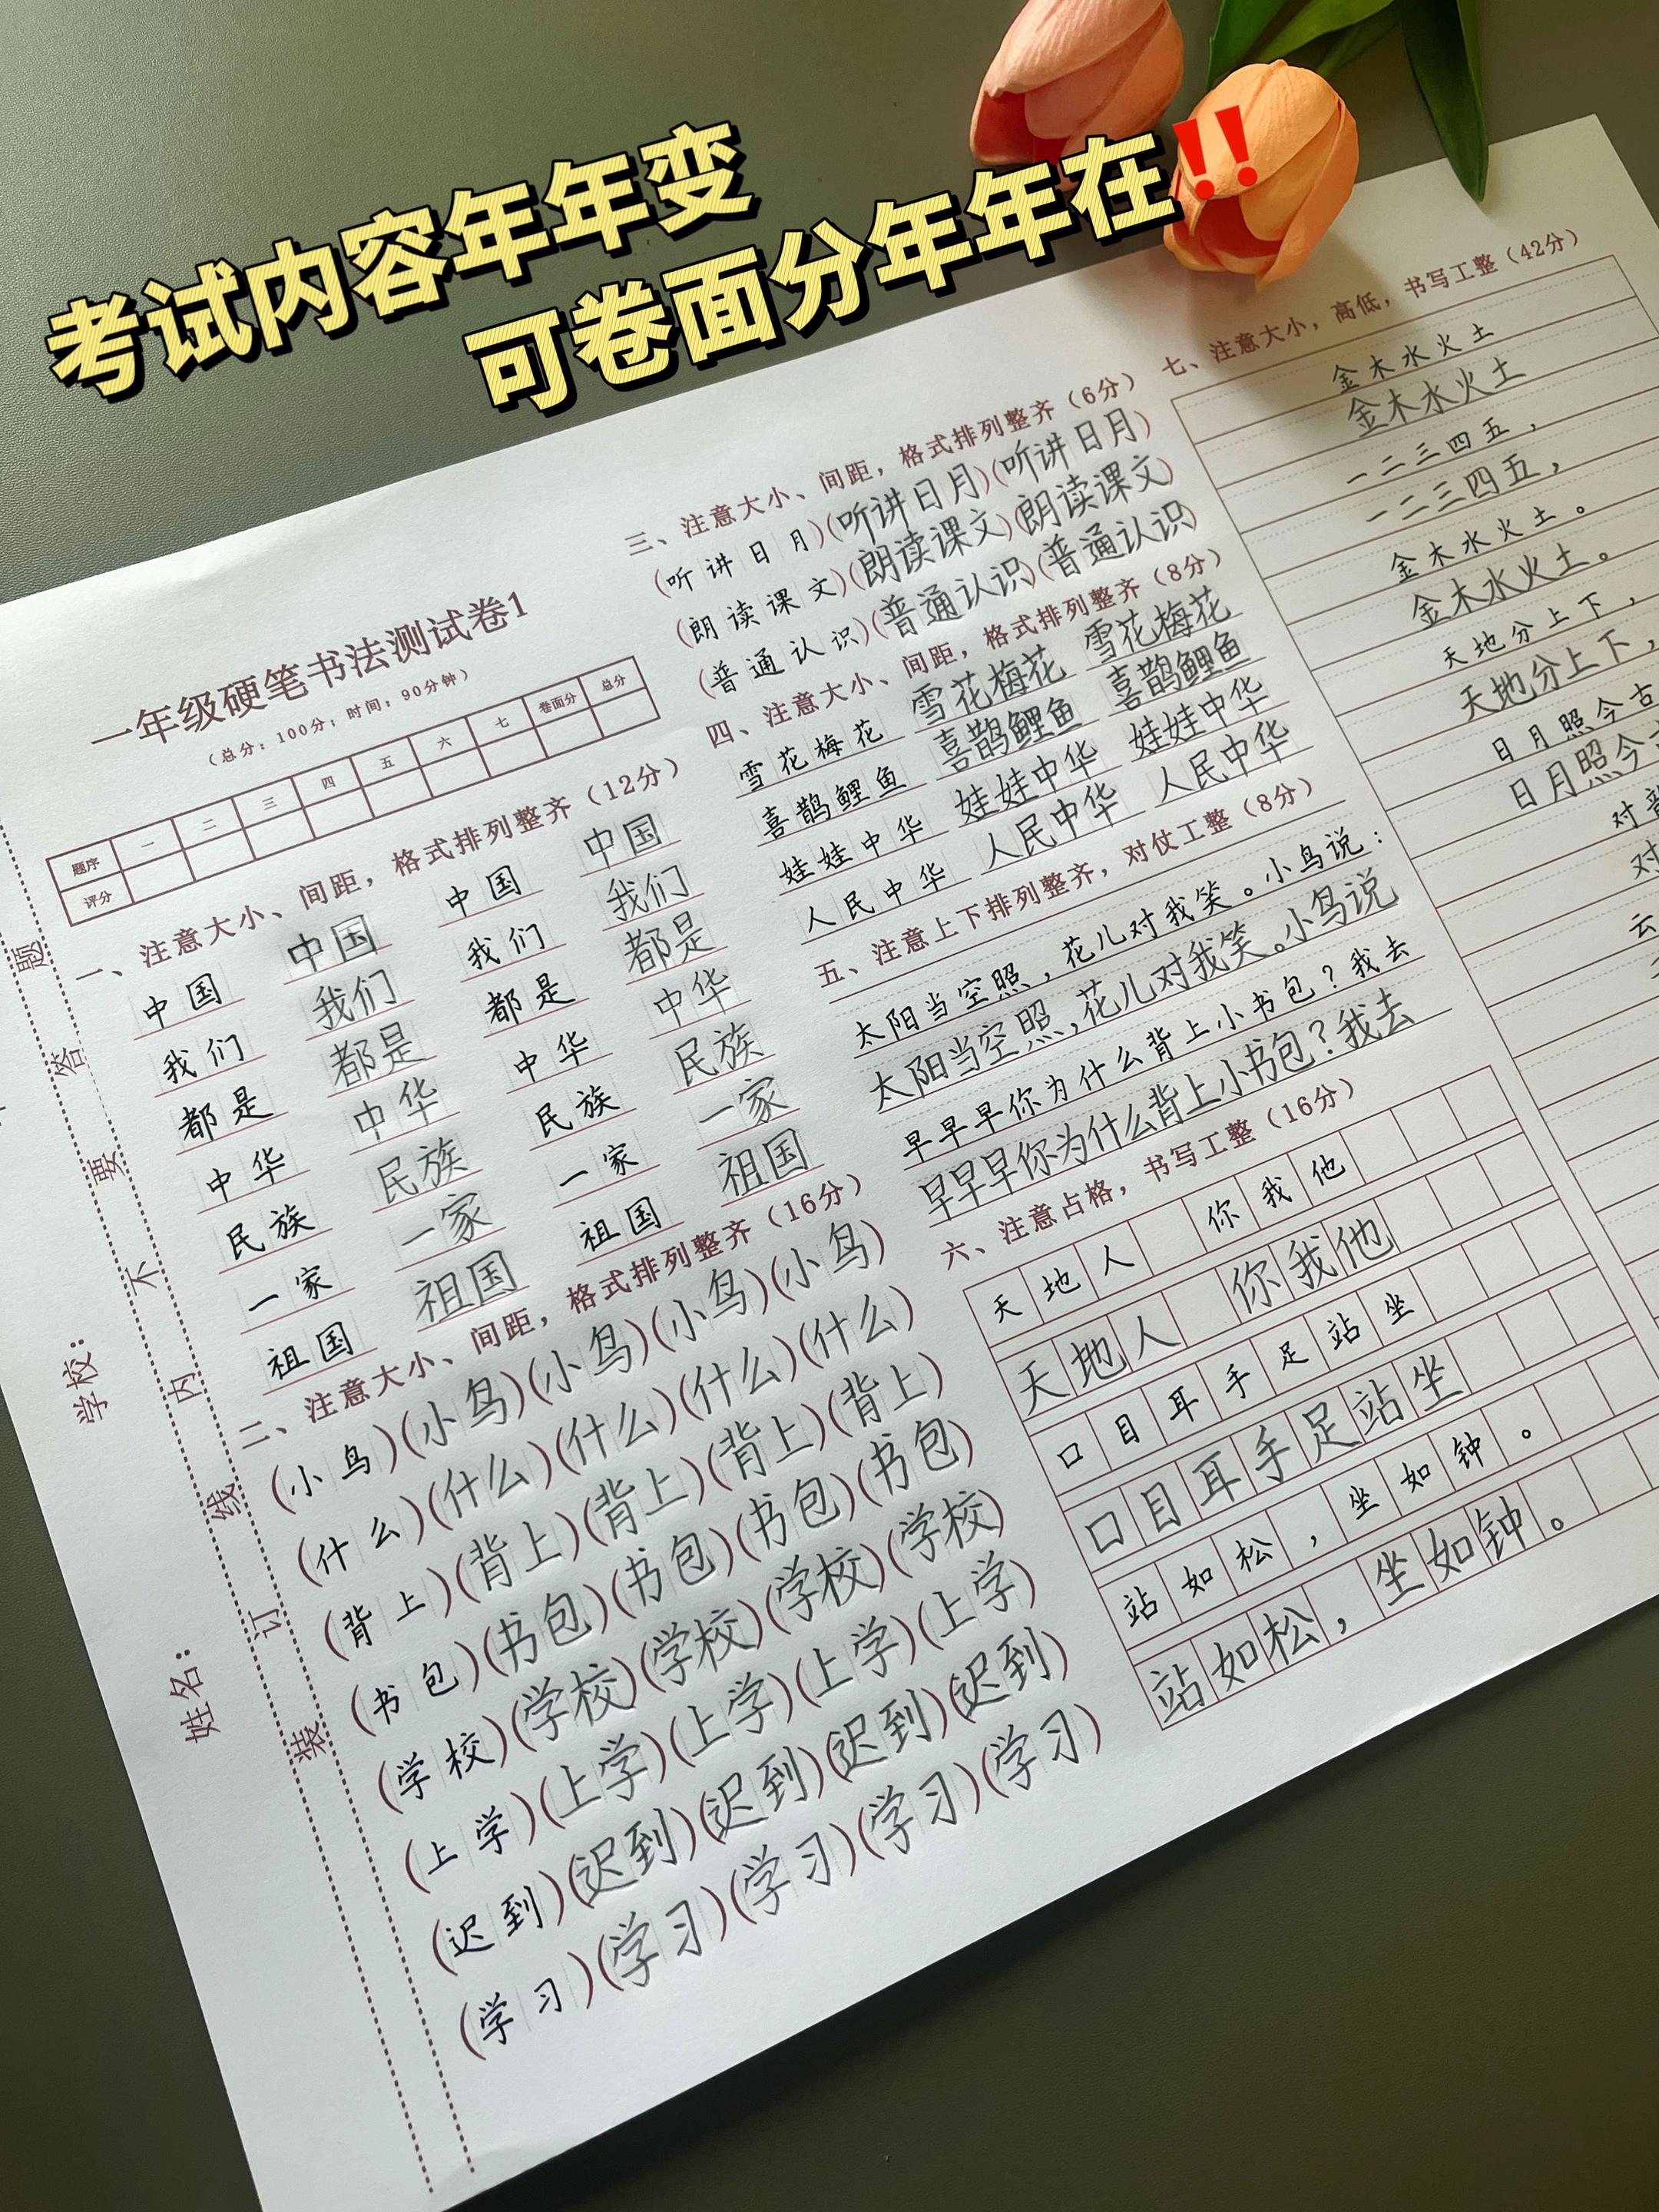 考试内容年年变
可卷面分年年在‼️
一年级硬笔书法测试卷1
（总分：100分；时间：90分钟）
题序 一 二 三 四 五 六 七 卷面分 总分
评分
一、注意大小、间距，格式排列整齐（12分）
中国 中国 中国 中国
我们 我们 我们 我们
都是 都是 都是 都是
中华 中华 中华 中华
民族 民族 民族 民族
一家 一家 一家 一家
祖国 祖国 祖国 祖国
二、注意大小、间距，格式排列整齐（16分）
(小鸟)(小鸟)(小鸟)(小鸟)(小鸟)
(什么)(什么)(什么)(什么)(什么)
(背上)(背上)(背上)(背上)(背上)
(书包)(书包)(书包)(书包)(书包)
(学校)(学校)(学校)(学校)(学校)
(上学)(上学)(上学)(上学)(上学)
(迟到)(迟到)(迟到)(迟到)(迟到)
(学习)(学习)(学习)(学习)(学习)
三、注意大小、间距，格式排列整齐（6分）
(听讲日月)(听讲日月)(听讲日月)
(朗读课文)(朗读课文)(朗读课文)
(普通认识)(普通认识)(普通认识)
四、注意大小、间距，格式排列整齐（8分）
雪花梅花 雪花梅花 雪花梅花
喜鹊鲤鱼 喜鹊鲤鱼 喜鹊鲤鱼
娃娃中华 娃娃中华 娃娃中华
人民中华 人民中华 人民中华
五、注意上下排列整齐，对仗工整（8分）
太阳当空照，花儿对我笑。小鸟说：
太阳当空照，花儿对我笑。小鸟说
早早早你为什么背上小书包？我去
早早早你为什么背上小书包？我去
六、注意占格，书写工整（16分）
天地人 你我他
天地人 你我他
口目耳手足站坐
口目耳手足站坐
站如松，坐如钟。
站如松，坐如钟。
七、注意大小，高低，书写工整（42分）
金木水火土
金木水火土
一二三四五，
一二三四五，
金木水火土。
金木水火土。
天地分上下，
天地分上下，
日月照今古
日月照今
对
对
云
学校：
姓名：
装订线内不要答题